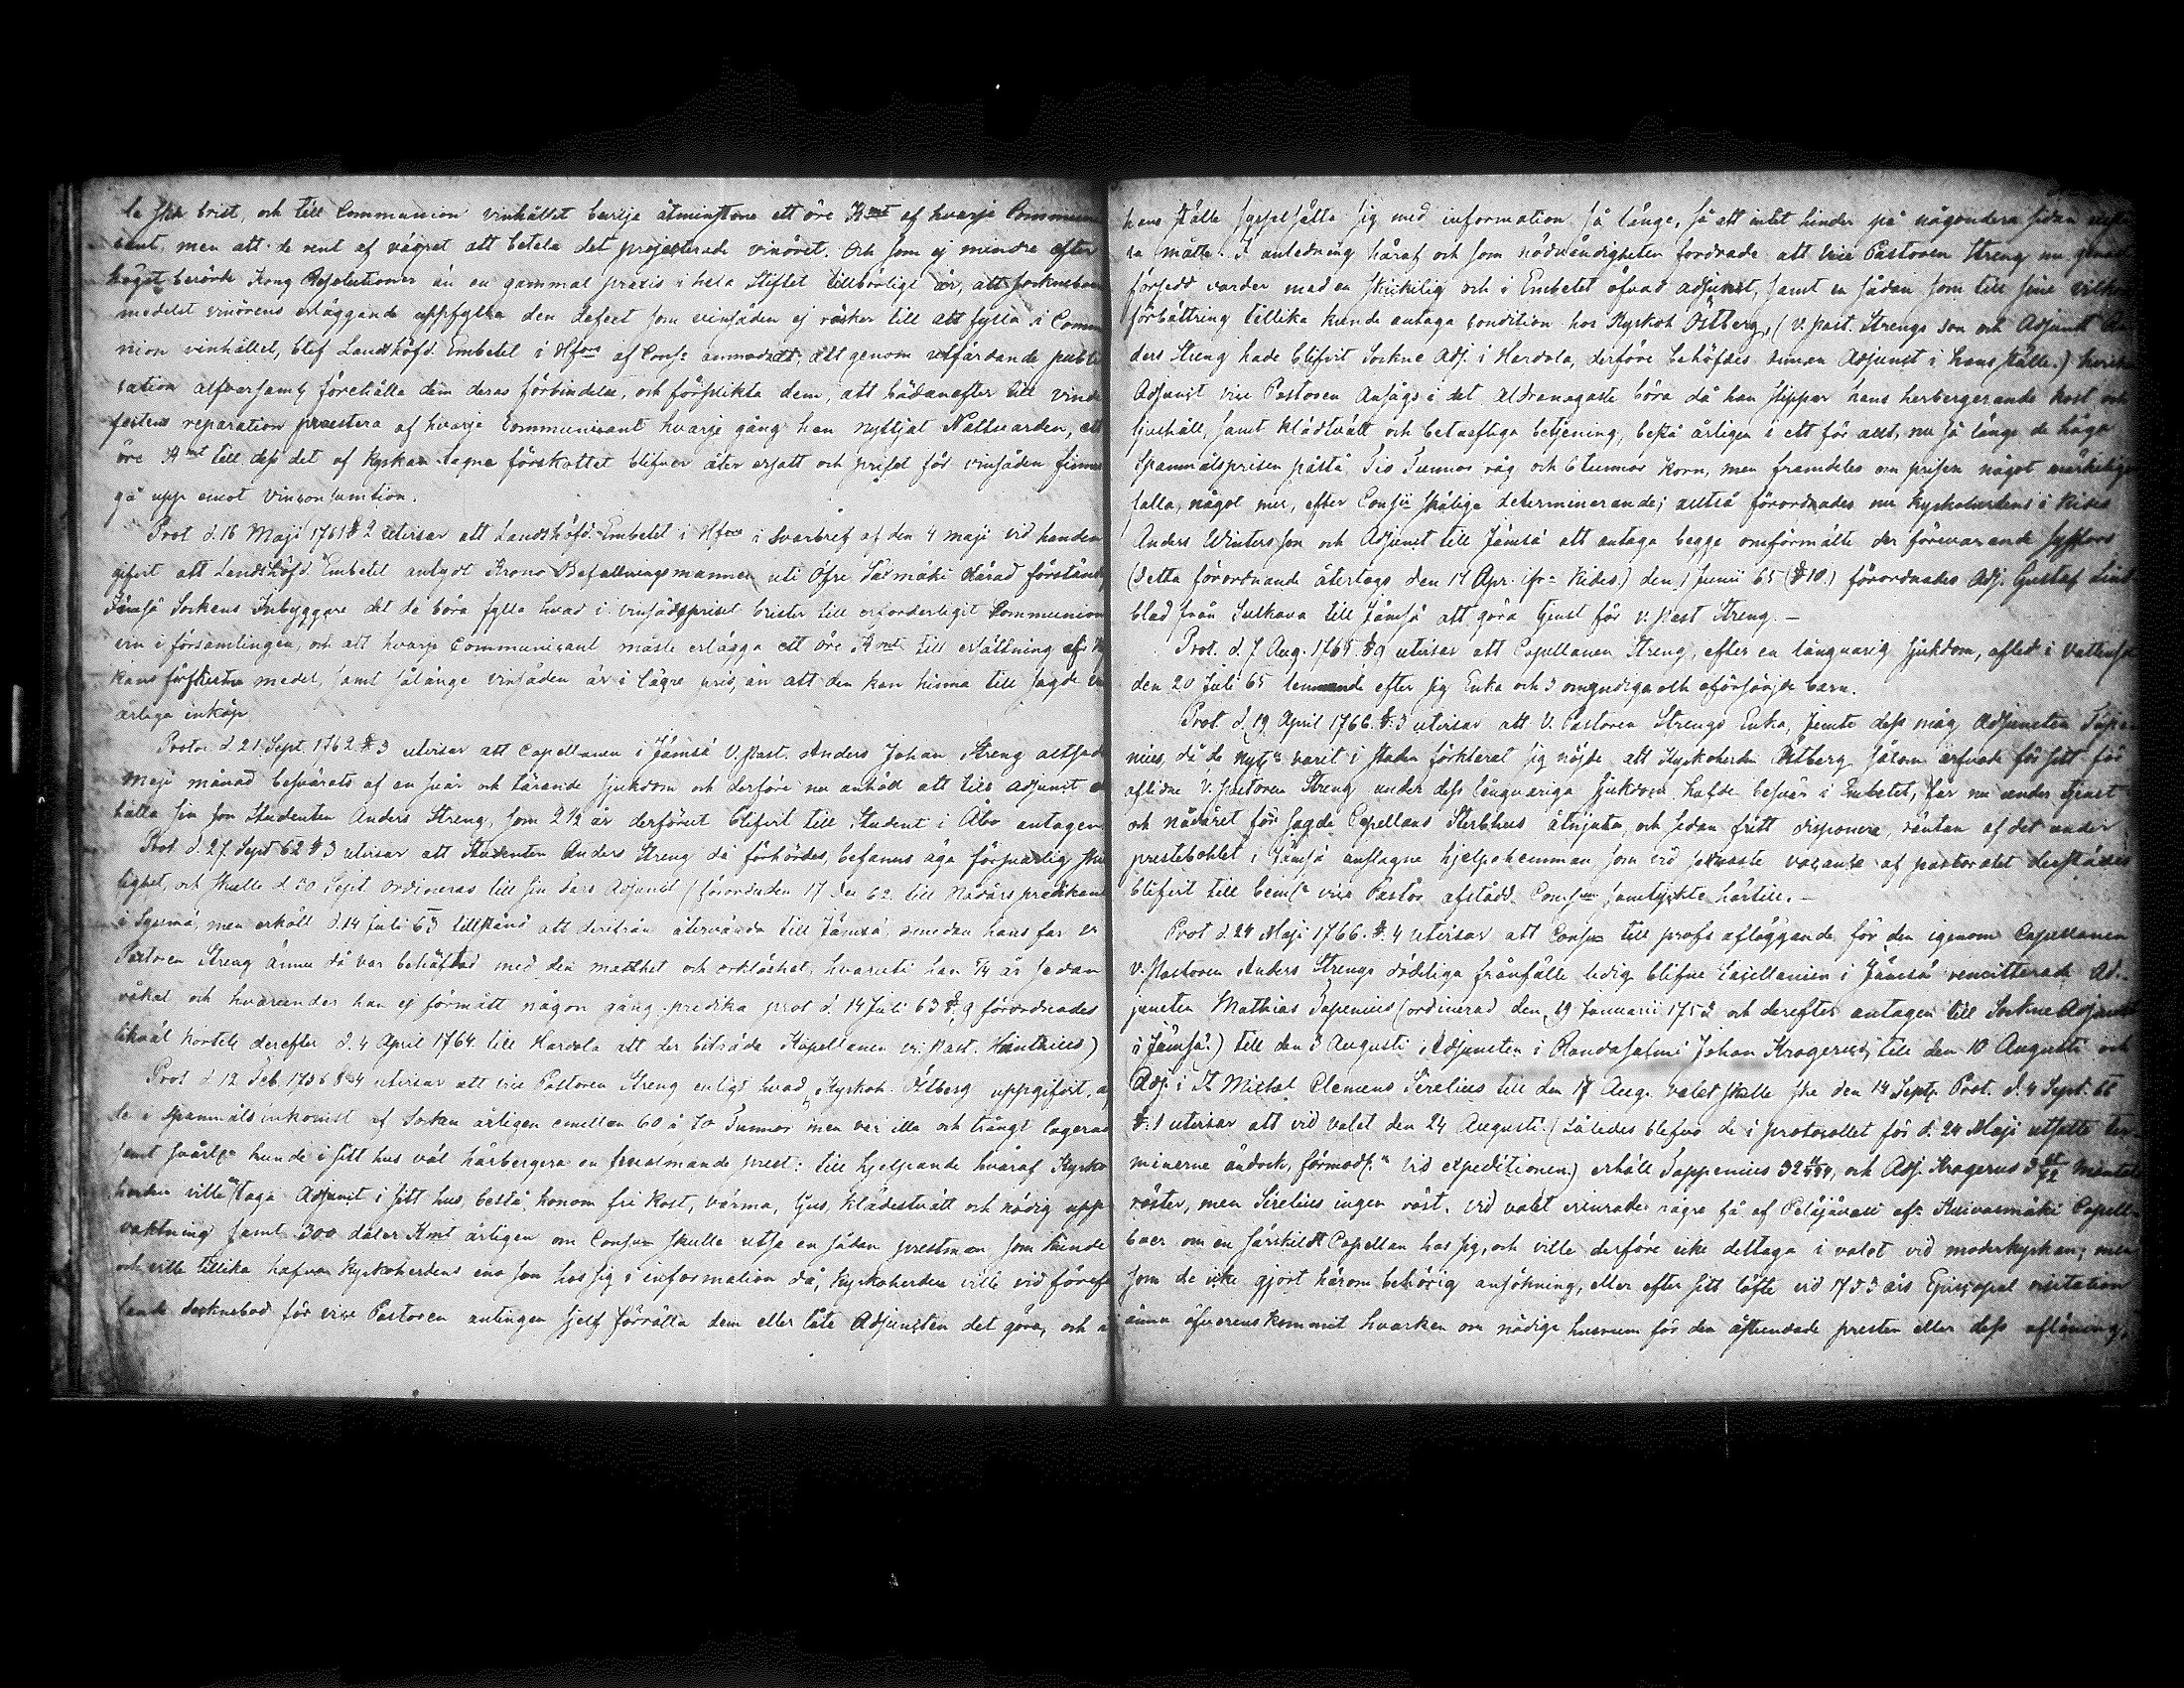 la ske brist, och till Communion vinhållet beviljа åtminstone ett öre Kmt af hvarje Commun
cant, men att de rent af vägrat att betala det projecterade vinöret. Och som ej mindre efter
högst berörde Kong Resolutioner än en gammal praxis i hela Stiftet tillbörligt är, att sockneboar
medelst vinörens erläggande uppfylla den defect som vinsäden ej räcker till att fylla i Commu
nion vinhållet, blef Landshöfd. Embetet i Hfors af Cons: anmodadt, att genom utfärdande publi
cation alfversamt förehålla dem deras förbindelse, och förplikta dem, att hädanefter till vind
fastens reparation præstera af hvarje Communicant hvarje gång han nyttjat Nattvarden, ett
öre Kmt till dess det af kyrkan tagne förskottet blifver åter ersatt och priset för vinsäden finner
gå upp emot vinconsumtion.
Prot d. 16 Maji 1761 § 2 utvisar att Landshöfd. Embetet i Hfors i Svarbref af den 4 maji vid handen
gifvit att Landshöfd. Embetet antydt Krono Befallningsmannen uti Öfre Satmäki Härad förständ
Jämsä Sockens Inbyggare det de böra fylla hvad i vinsädspriset brister till erforderligit Communion
vin i församlingen, och att hvarje Communicant måste erlägga ett öre Kmt till ersättning af Ky
kans förskutna medel, samt sålänge vinsäden är i lägre pris, än att den kan hinna till sagde vin
årliga inköp.
Protoc d. 21 Sept. 1762 § 3 utvisar att Capellanen i Jämsä V. Past. Anders Johan Streng altsed
Maji månad besvärats af en svår och tärande sjukdom och derföre nu anhöll att till adjunct er
hålla sin son Studenten Anders Streng, som 2 1/2 år derförut blifvit till Student i Åbo antagen
Prot d. 27. Sept 62 § 3 utvisar att Studenten Anders Streng då förhördes, befanns äga försvarlig skic
lighet, och skulle d. 30 Sept ordineras till sin Fars Adjunct (förordnaden 17 Dec 62 till Nådårs predikant
i Sysmä, men erhöll d. 14 Juli 63 tillstånd att derifrån återvända till Jämsä, emedan hans far v.
Pastoren Streng ännu då var behäftad med den matthet och orklöshet, hvaruti han 5/4 år sedan
råkat och hvarunder han ej förmått någon gång predika prot d. 14 Juli 63 § 9 förordnades
likväl kortelt derefter d. 4 April 1764 till Hartola att der biträda Kapellanen vi: Past. Hainthius)
Prot d. 12 Feb. 1765 § 4 utvisar att vice Pastoren Streng enligt hvad Kyrkoh. Östberg uppgifvit, ag
de i Spanmåls inkomst af Socken årligen emellan 60 à 70 Tunnor men var illa och trångt lagerad
samt svårlig: kunde i sitt hus väl härbergera en fremmande prest: till hjelpande hvaraf Kyrko
herden ville taga Adjunct i sitt hus, bestå honom fri kost, värma, ljus, klädestvätt och nödig upp
vaktning samt 300 daler Kmt årligen om Cons:um skulle utse en sådan prestman som kunde
och ville tillika hafva Kyrkoherdens ena son hos sig i information då, Kyrkoherden ville vid förefal
lande sockneböd för vice Pastoren antingen sjelf förrätta dem eller låta Adjuncten det göra, och i
hans ställe sysselsätta sig med information så länge, så att intet hinder på någondera sidan upp
ta måtte. I anledning häraf och som nödvändigheten fordrade att vice Pastoren Streng nu genast
försedd varder med en skickelig och i Embetet öfvad adjunct, samt en sådan som till sine vilkors
förbättring tillika kunde antaga condition hos Kyrkoh Östberg, (v. past. Strengs son och Adjunct An
ders Streng hade blifvit Sockne Adj. i Hartola, derföre behöfdes annan Adjunct i hans ställe.) hvilken
Adjunct vice Pastoren Ansågs i det aldranogaste böra då han slipper hans herbergerande kost och
ljushåll, samt klädtvätt och betarftiga betjening, bestå årligen i ett för allt, nu så länge de höga
Spanmålsprisen påstå Tio Tunnor råg och 6 tunnor Korn, men framdeles om prisen något märkeligen
falla, något mer, efter Cons:ii skäliga determinerande; altså förordnades nu Kyrkoherdens i Kides
Anders Winters son och Adjunct till Jämsä att antaga begge omförmälte der förevarande sysslor
(Detta förordnande återtogs den 17 Apr. ifr: Kides.) den 1 Junii 65 (§ 10.) förordnades Adj. Gustaf Lind
blad från Sulkava till Jämsä att göra tjenst för v. Past Streng. –
Prot. d. 7 Aug. 1765 § 9 utvisar att Capellanen Streng, efter en långvarig sjukdom, afled i vattusot
den 20 Juli 65 lemnande efter sig Enka och 3 omyndiga och oförsörjde barn.
Prot. d. 19 April 1766. §. 3 utvisar att V. Pastoren Strengs Enka, jemte dess måg Adjuncten Sape
nius, då de nyl: varit i staden förklarat sig nöjde att Kyrkoherden Östberg såsom arfvode för sitt för
aflidne V. Pastoren Streng under dess långvariga sjukdom hafde besvär i Embetet, får nu under tjenst
och nådåret för sagde Capellans Sterbhus åtnjuta, och sedan fritt disponera, räntan af det under
prestebohlet i Jämsä anslagne hjelpehemman, som vid sednaste vacance af pastoratet derstädes
blifvit till bem:te vice Pastor afstådd. Cons:um samtyckte härtill. –
Prot d. 24 Maji 1766. §. 4 utvisar att Cons:um till profs afläggande för den igenom Capellanen
V. Pastoren Anders Strengs dödeliga frånfälle ledig blifne Capellanien i Jämsä remitterade Ad-
juncten Mathias Sapenius (ordinerad den 19 Januarii 1753 och derefter antagen till Sockne Adjunct
i Jämsä.) till den 3 Augusti, Adjuncten i Randasalmi Johan Krogerus, till den 10 Augusti och
Adj. i St Michel Clemens Sirelius till den 17 Aug. valet skulle ske den 14 Sept. Prot. d. 4 Sept. 66
§. 1 utvisar att vid valet den 24 Augusti (således blefvo de i protocollet för d. 24 Maji utsatte ter-
minerne ändock, förmod:n vid expeditionen.) erhöll Sappenius 32, och Adj. Krogerus 3 Mantals
röster, men Sirelius ingen röst. Vid valet erinrade några få af Petäjävesi af: Kuivasmäki Capell-
boer om en särskildt Capellan hos sig, och ville derföre icke deltaga i valet vid moderkyrkan; men
som de icke gjort härom behörig ansökning, eller efter sitt löfte vid 1753 års Episcopal visitation
ännu öfverenskommit hvarken om nödige husrum för den åstundade presten eller dess aflöning,